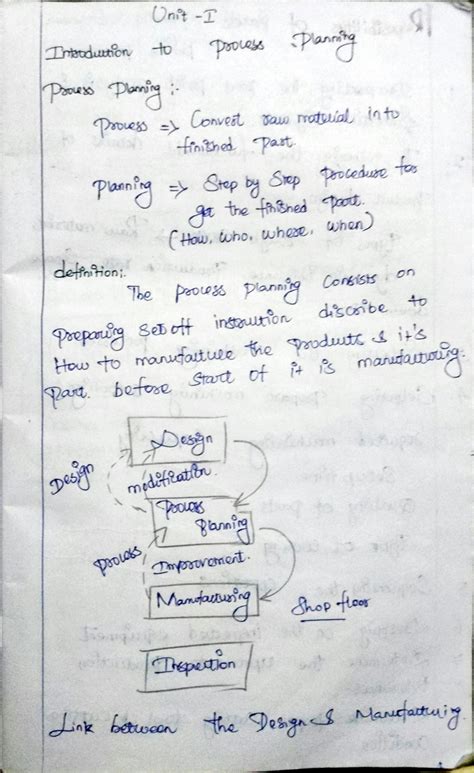 Unit - I
Introduction to Process Planning
Process Planning :-
Process => Convert raw material into
finished part.
Planning => Step by Step Procedure for
get the finished part.
(How, who, where, when)
definition:.
The process planning consists on
preparing set off instruction discribe to
How to manufacture the products & it's
part. before start of it is manufacturing.
Design
Design
modification.
Process
Planning
Process
Improvement.
Manufacturing
Shop floor
Inspection
Link between the Design & Manufacturing.